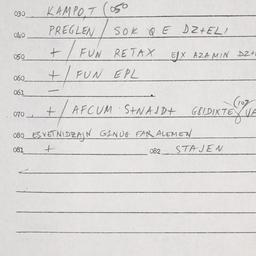 030 KAMPO,T (050
040 PREGLEN / SOK Q E DZ+ELI
050 + / FUN RETAX EJX AZAMIN DZ+
060 + / FUN EPL
061 —
070 + / AFCUM S+NAJD+ GEIDIXTE
080 ESVETNIDZAJN GINUE FAR ALEMEN
081 + 082 STAJEN